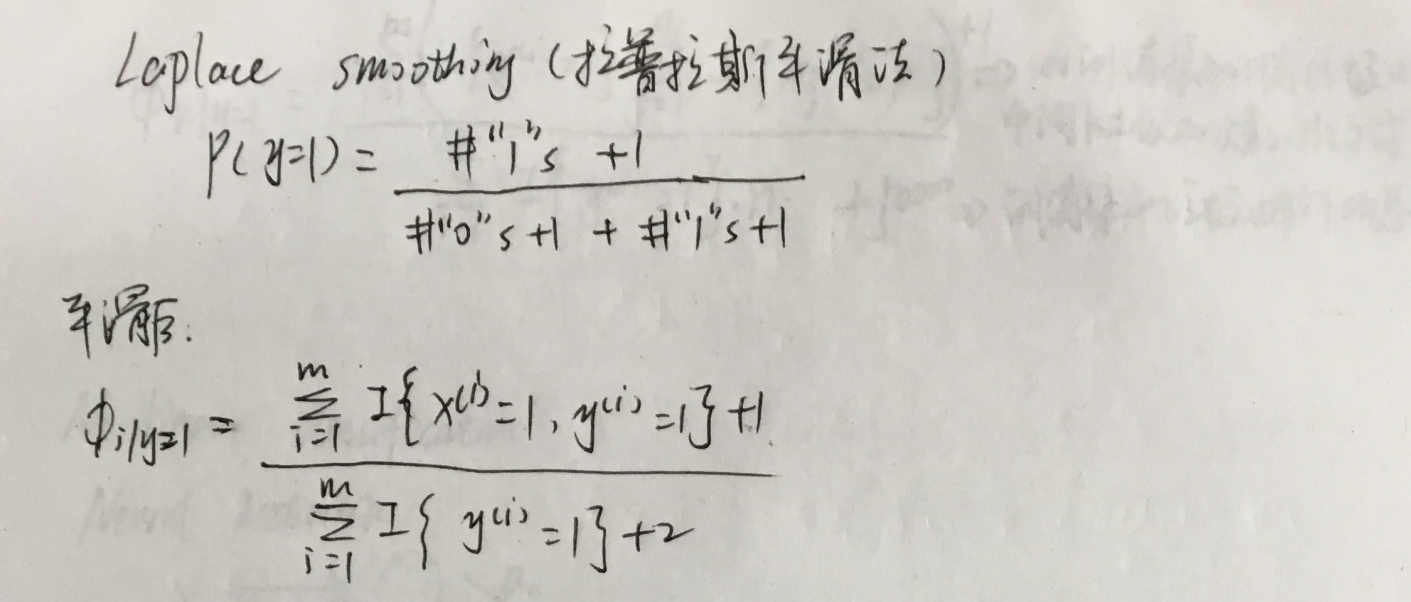 Laplace smoothing (拉普拉斯平滑法)
P(y=1) = \frac{\#"1"s +1}{\#"0"s+1 + \#"1"s+1}
平滑后:
\phi_{i|y=1} = \frac{\sum_{i=1}^{m} I\{x^{(i)}=1, y^{(i)}=1\}+1}{\sum_{i=1}^{m} I\{y^{(i)}=1\}+2}